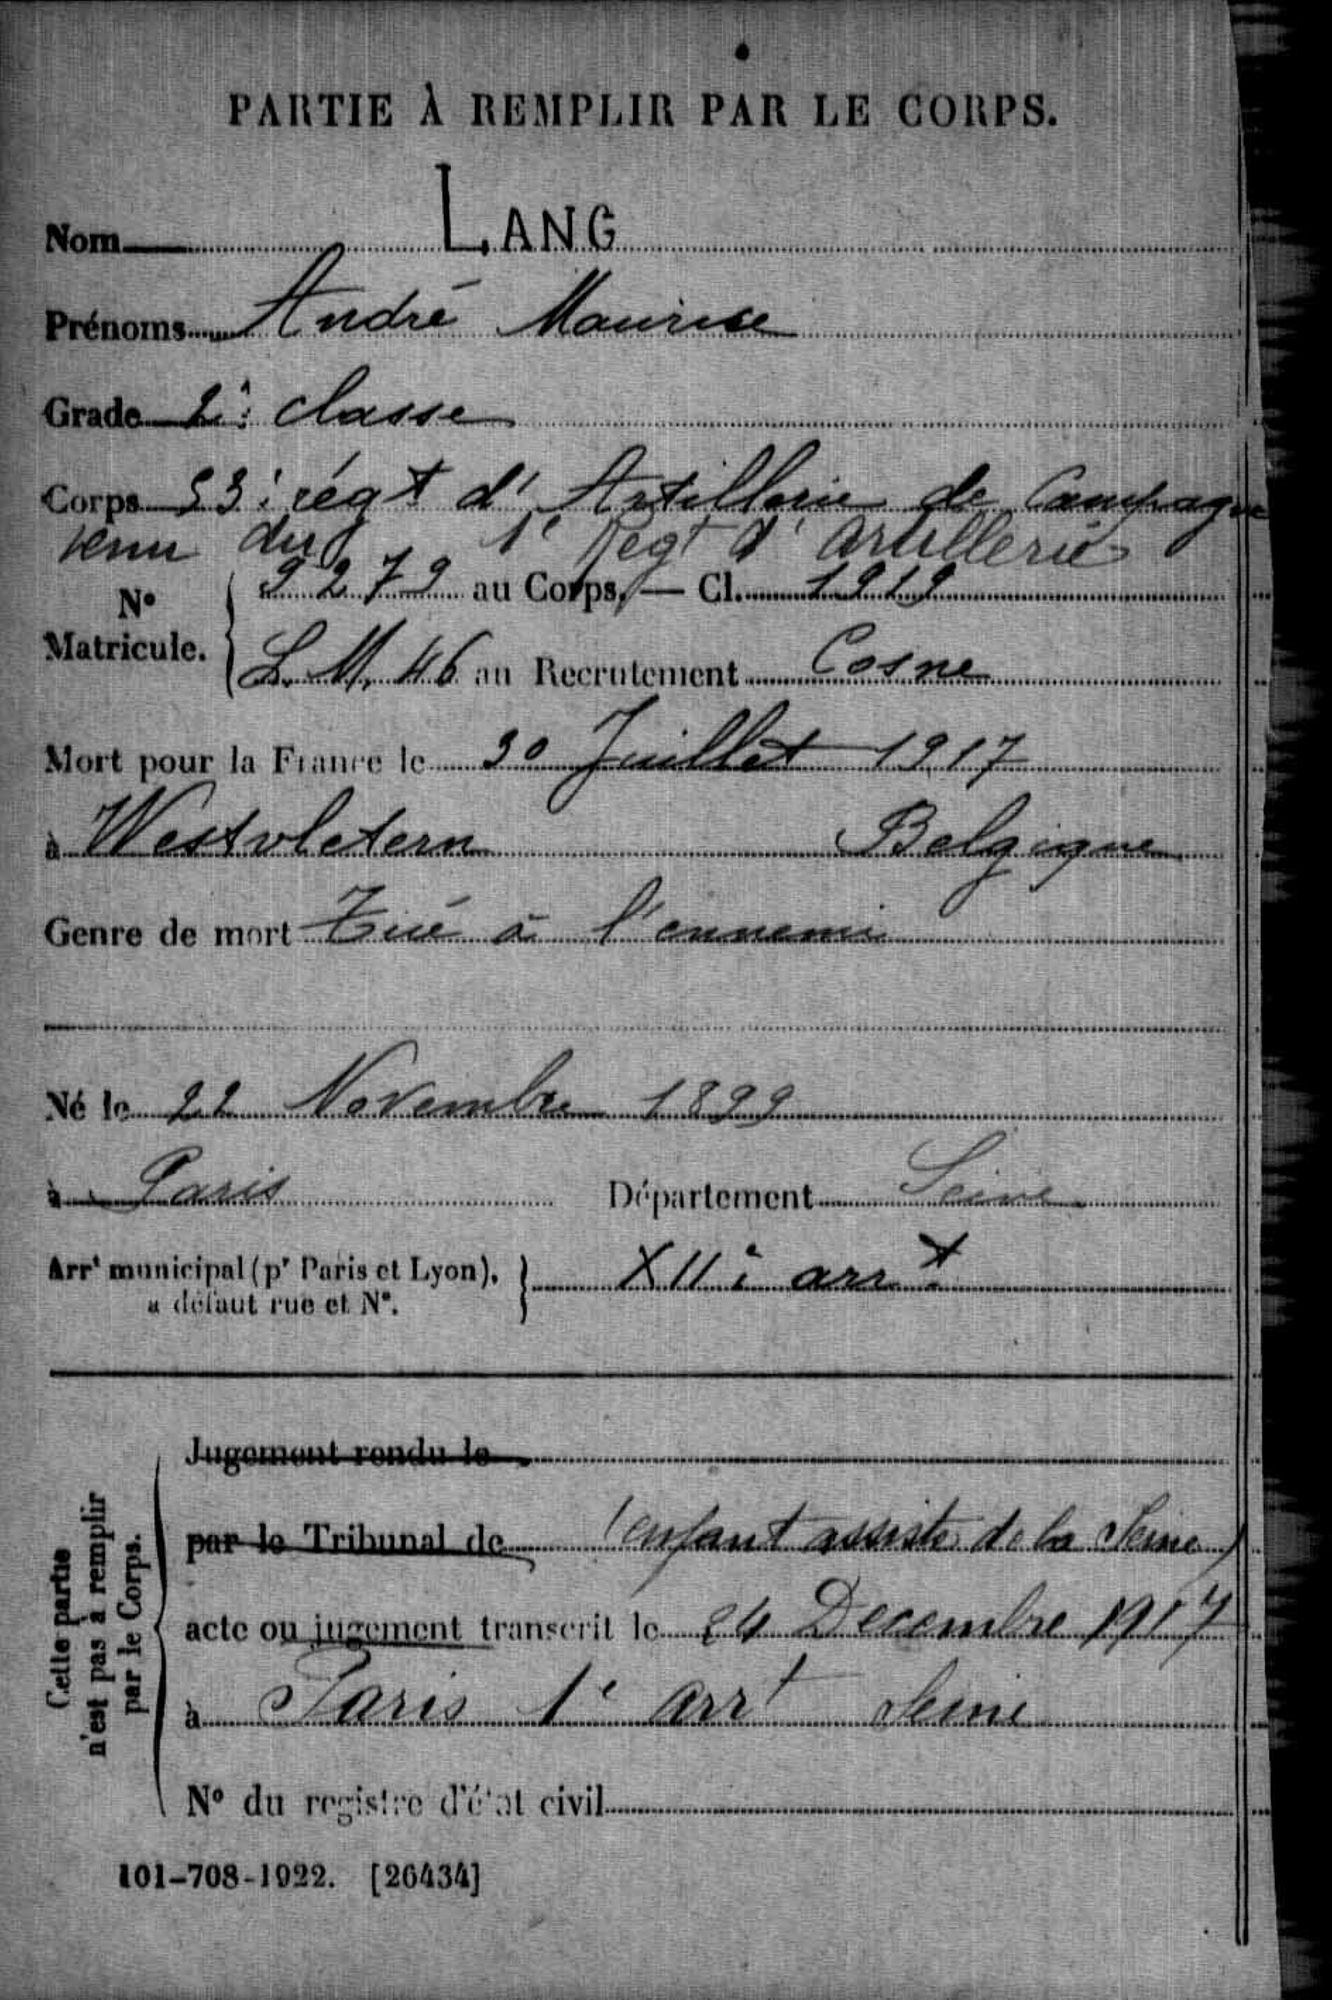 PARTIE À REMPLIR PAR LE CORPS.
Nom LANG
Prénoms André Maurice
Grade 2è: classe
Corps 53: régt d'Artillerie de Campagne
venu du 1e Regt d'Artillerie
No Matricule. { 9279 au Corps. — Cl. 1919
L.M. 46 au Recrutement Cosne
Mort pour la France le 30 Juillet 1917
à Westvletern Belgique
Genre de mort Tué à l'ennemi
Né le 22 Novembre 1899
à Paris Département Seine
Arrt municipal (pr Paris et Lyon), } XIIè arrt
à défaut rue et No.
Cette partie n'est pas à remplir par le Corps.
Jugement rendu le
par le Tribunal de (enfant assisté de la Seine)
acte ou jugement transcrit le 24 Decembre 1917
à Paris 1e arrt Seine
No du registre d'état civil
101-708-1922. [26434]